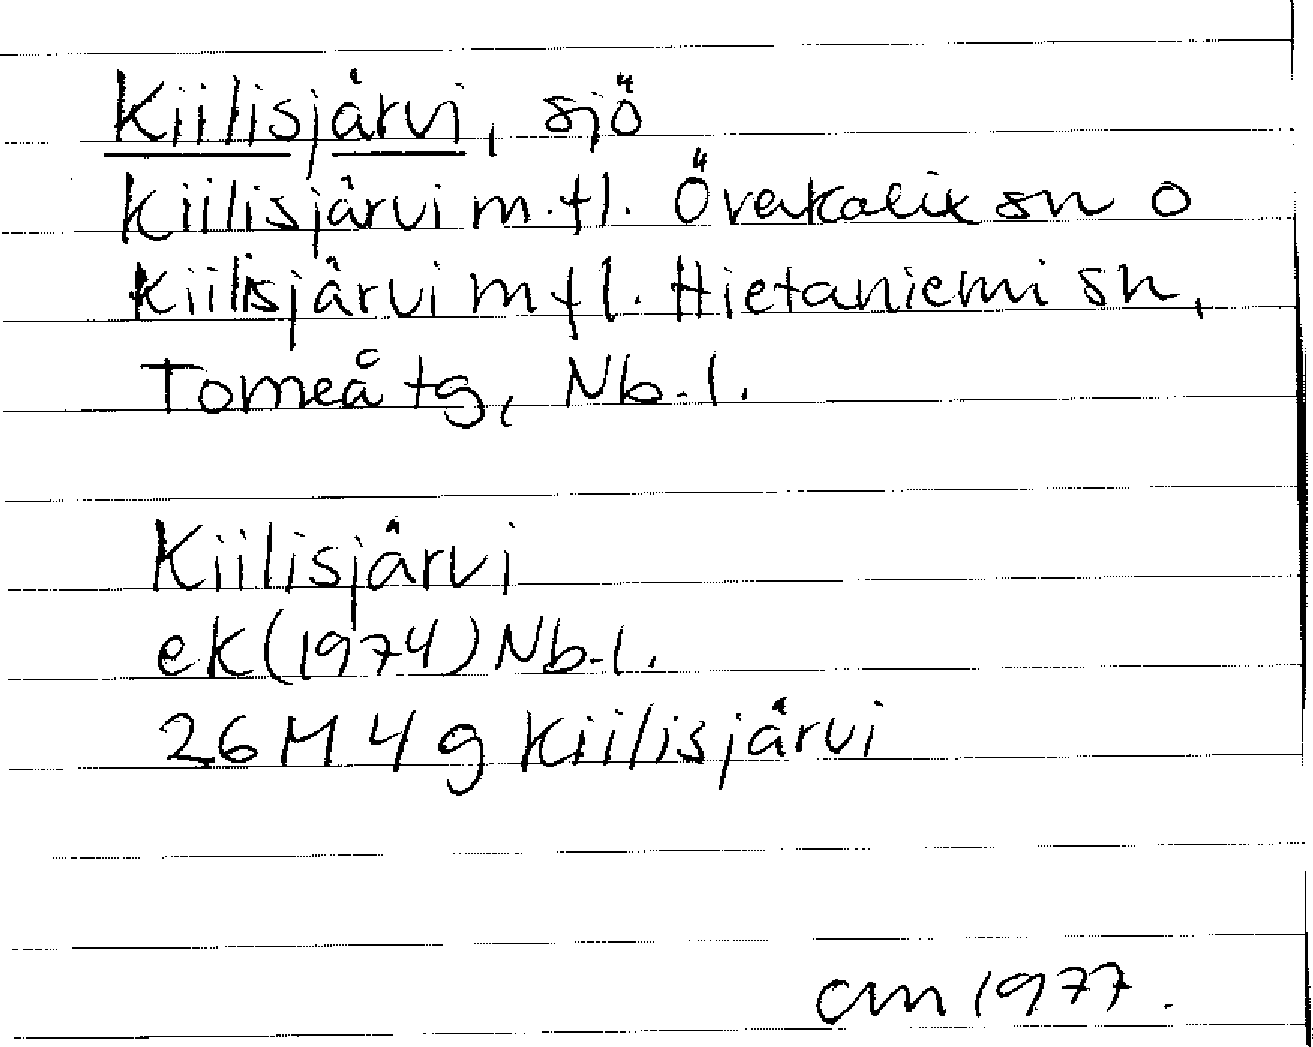 Kiilisjärvi, sjö
Kiilisjärvi m.fl. Överkalix sn o
Kiilisjärvi m fl. Hietaniemi sn,
Torneå tg, Nb.l.
Kiilisjärvi
ek (1974) Nb.l.
26 M 4 g Kiilisjärvi
cm 1977.